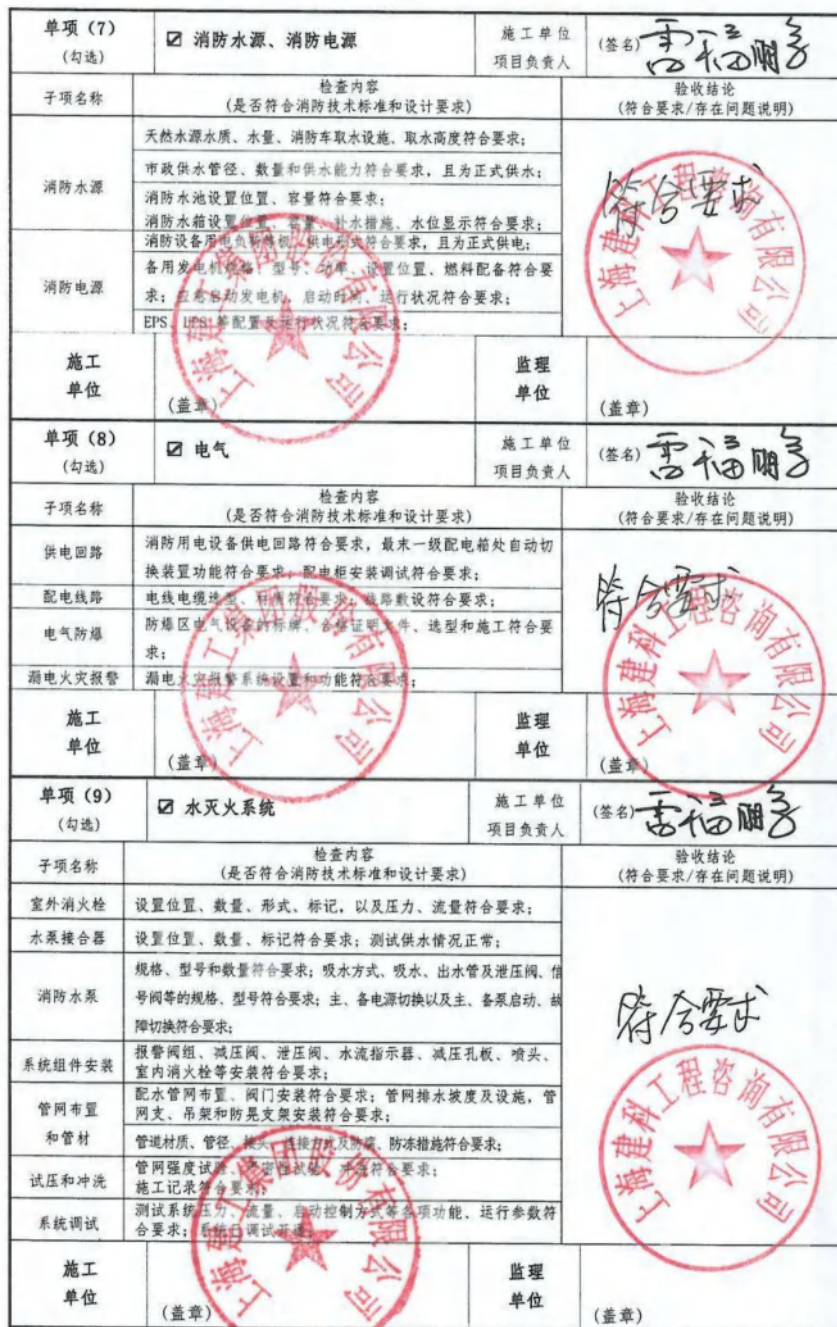 单项（7）
(勾选)
☑ 消防水源、消防电源
施工单位
项目负责人
(签名) 雷福鹏
子项名称
检查内容
(是否符合消防技术标准和设计要求)
验收结论
(符合要求/存在问题说明)
消防水源
天然水源水质、水量、消防车取水设施、取水高度符合要求；
市政供水管径、数量和供水能力符合要求，且为正式供水；
消防水池设置位置、容量符合要求；
消防水箱设置位置、容量、补水措施、水位显示符合要求；
符合要求
上海建科工程咨询有限公司
消防电源
消防设备用电负荷等级、供电形式符合要求，且为正式供电；
备用发电机规格、型号、功率、设置位置、燃料配备符合要
求；应急启动发电机，启动时间、运行状况符合要求；
EPS、UPS 等配置及运行状况符合要求；
施工
单位
(盖章)
上海建工集团股份有限公司
监理
单位
(盖章)
单项（8）
(勾选)
☑ 电气
施工单位
项目负责人
(签名) 雷福鹏
子项名称
检查内容
(是否符合消防技术标准和设计要求)
验收结论
(符合要求/存在问题说明)
供电回路
消防用电设备供电回路符合要求，最末一级配电箱处自动切
换装置功能符合要求，配电柜安装调试符合要求；
符合要求
配电线路
电线电缆选型、材质符合要求；线路敷设符合要求；
电气防爆
防爆区电气设备的标牌、合格证明文件、选型和施工符合要
求；
漏电火灾报警
漏电火灾报警系统设置和功能符合要求；
上海建工集团股份有限公司
上海建科工程咨询有限公司
施工
单位
(盖章)
监理
单位
(盖章)
单项（9）
(勾选)
☑ 水灭火系统
施工单位
项目负责人
(签名) 雷福鹏
子项名称
检查内容
(是否符合消防技术标准和设计要求)
验收结论
(符合要求/存在问题说明)
室外消火栓
设置位置、数量、形式、标记，以及压力、流量符合要求；
水泵接合器
设置位置、数量、标记符合要求；测试供水情况正常；
消防水泵
规格、型号和数量符合要求；吸水方式、吸水、出水管及泄压阀、信
号阀等的规格、型号符合要求；主、备电源切换以及主、备泵启动、故
障切换符合要求；
符合要求
系统组件安装
报警阀组、减压阀、泄压阀、水流指示器、减压孔板、喷头、
室内消火栓等安装符合要求；
管网布置
和管材
配水管网布置、阀门安装符合要求；管网排水坡度及设施，管
网支、吊架和防晃支架安装符合要求；
管道材质、管径、接头、连接方式及防腐、防冻措施符合要求；
试压和冲洗
管网强度试验、严密性试验、冲洗符合要求；
施工记录符合要求；
系统调试
测试系统压力、流量、启动控制方式等各项功能、运行参数符
合要求；系统已调试开通；
上海建工集团股份有限公司
上海建科工程咨询有限公司
施工
单位
(盖章)
监理
单位
(盖章)